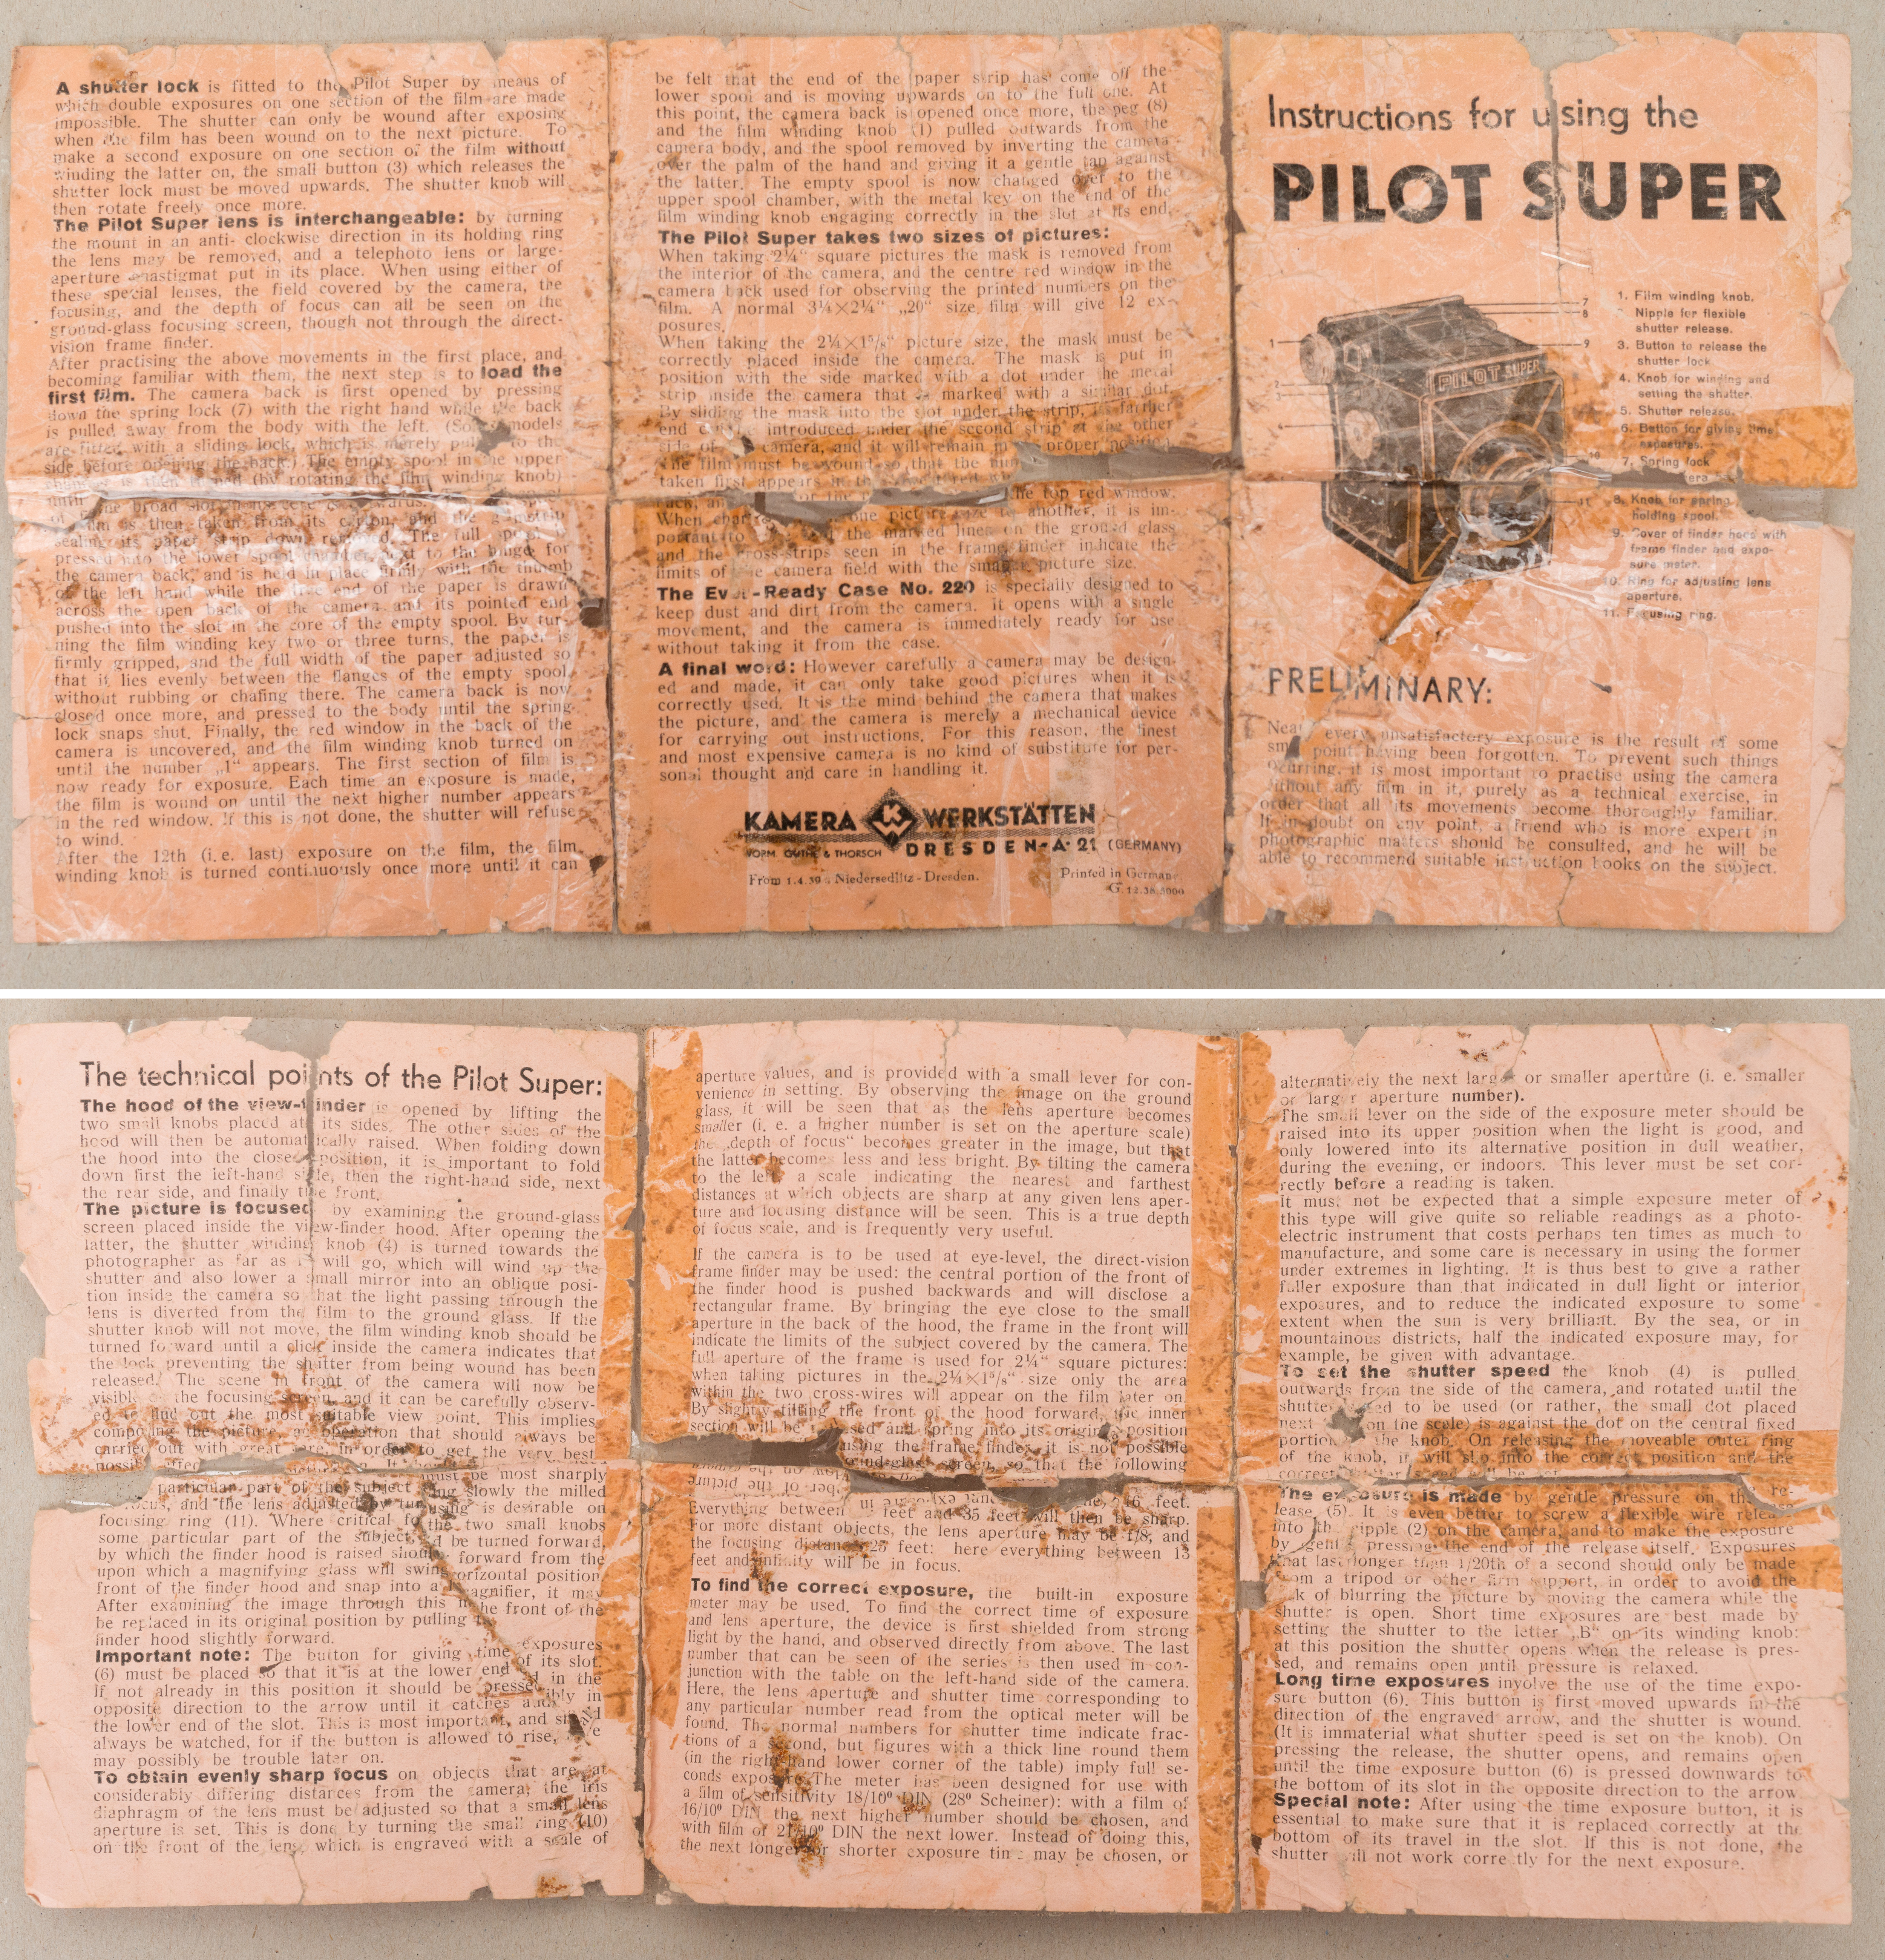 A shutter lock is fitted to the Pilot Super by means of
which double exposures on one section of the film are made
impossible. The shutter can only be wound after exposing
when the film has been wound on to the next picture. To
make a second exposure on one section of the film without
winding the latter on, the small button (3) which releases the
shutter lock must be moved upwards. The shutter knob will
then rotate freely once more.
The Pilot Super lens is interchangeable: by turning
the mount in an anti- clockwise direction in its holding ring
the lens may be removed, and a telephoto lens or large-
aperture anastigmat put in its place. When using either of
these special lenses, the field covered by the camera, the
focusing, and the depth of focus can all be seen on the
ground-glass focusing screen, though not through the direct-
vision frame finder.
After practising the above movements in the first place, and
becoming familiar with them, the next step is to load the
first film. The camera back is first opened by pressing
down the spring lock (7) with the right hand while the back
is pulled away from the body with the left. (Some models
are fitted with a sliding lock, which is merely to the
side before opening the back.) The empty spool in the upper
(by rotating the film winding knob)
until the broad slot
of film is then taken from its carton, and the
sealing its paper strip down removed. The full spool
pressed into the lower spool chamber next to the hinge for
the camera back, and is held in place firmly with the thumb
of the left hand while the free end of the paper is drawn
across the open back of the camera and its pointed end
pushed into the slot in the core of the empty spool. By tur-
ning the film winding key two or three turns, the paper is
firmly gripped, and the full width of the paper adjusted so
that it lies evenly between the flanges of the empty spool
without rubbing or chafing there. The camera back is now
closed once more, and pressed to the body until the spring
lock snaps shut. Finally, the red window in the back of the
camera is uncovered, and the film winding knob turned on
until the number „1“ appears. The first section of film is
now ready for exposure. Each time an exposure is made,
the film is wound on until the next higher number appears
in the red window. If this is not done, the shutter will refuse
to wind.
After the 12th (i. e. last) exposure on the film, the film
winding knob is turned continuously once more until it can
be felt that the end of the paper strip has come off the
lower spool and is moving upwards on to the full one. At
this point, the camera back is opened once more, the peg (8)
and the film winding knob (1) pulled outwards from the
camera body, and the spool removed by inverting the camera
over the palm of the hand and giving it a gentle tap against
the latter. The empty spool is now changed over to the
upper spool chamber, with the metal key on the end of the
film winding knob engaging correctly in the slot at its end.
The Pilot Super takes two sizes of pictures:
When taking 2¼“ square pictures the mask is removed from
the interior of the camera, and the centre red window in the
camera back used for observing the printed numbers on the
film. A normal 3¼×2¼“ „20“ size film will give 12 ex-
posures.
When taking the 2¼×1⁵/₈“ picture size, the mask must be
correctly placed inside the camera. The mask is put in
position with the side marked with a dot under the metal
strip inside the camera that is marked with a similar dot.
By sliding the mask into the slot under the strip, its farther
end introduced under the second strip at the other
side of camera, and it will remain in proper position.
The film must be wound so that the
taken first appears in the
the top red window.
When one picture size to another, it is im-
portant to the marked lines on the ground glass
and the cross-strips seen in the frame finder indicate the
limits of the camera field with the smaller picture size.
The Ever-Ready Case No. 220 is specially designed to
keep dust and dirt from the camera. it opens with a single
movement, and the camera is immediately ready for use
without taking it from the case.
A final word: However carefully a camera may be design-
ed and made, it can only take good pictures when it is
correctly used. It is the mind behind the camera that makes
the picture, and the camera is merely a mechanical device
for carrying out instructions. For this reason, the finest
and most expensive camera is no kind of substitute for per-
sonal thought and care in handling it.
KAMERA KW WERKSTÄTTEN
VORM. GUTHE & THORSCH DRESDEN-A·21 (GERMANY)
From 1.4.39 : Niedersedlitz - Dresden. Printed in Germany
G. 12.38.5000
Instructions for using the
PILOT SUPER
PILOT SUPER
1
2
3
4
7
8
9
10
11
1. Film winding knob.
Nipple for flexible
shutter release.
3. Button to release the
shutter lock
4. Knob for winding and
setting the shutter.
5. Shutter release.
6. Button for giving time
exposures.
7. Spring lock
8. Knob for spring
holding spool.
9. Cover of finder hood with
frame finder and expo-
sure meter.
10. Ring for adjusting lens
aperture.
11. Focusing ring.
PRELIMINARY:
Nearly every unsatisfactory exposure is the result of some
small point having been forgotten. To prevent such things
ocurring, it is most important to practise using the camera
without any film in it, purely as a technical exercise, in
order that all its movements become thoroughly familiar.
If in doubt on any point, a friend who is more expert in
photographic matters should be consulted, and he will be
able to recommend suitable instruction books on the subject.
The technical points of the Pilot Super:
The hood of the view-finder is opened by lifting the
two small knobs placed at its sides. The other sides of the
hood will then be automatically raised. When folding down
the hood into the closed position, it is important to fold
down first the left-hand side, then the right-hand side, next
the rear side, and finally the front.
The picture is focused by examining the ground-glass
screen placed inside the view-finder hood. After opening the
latter, the shutter winding knob (4) is turned towards the
photographer as far as it will go, which will wind up the
shutter and also lower a small mirror into an oblique posi-
tion inside the camera so that the light passing through the
lens is diverted from the film to the ground glass. If the
shutter knob will not move, the film winding knob should be
turned forward until a click inside the camera indicates that
the lock preventing the shutter from being wound has been
released. The scene in front of the camera will now be
visible on the focusing screen, and it can be carefully observ-
ed to find out the most suitable view point. This implies
composing the picture, an operation that should always be
carried out with great care in order to get the very best
must be most sharply
particular part of the subject slowly the milled
focus, and the lens adjusted by is desirable on
focusing ring (11). Where critical the two small knobs
some particular part of the subject, be turned forward,
by which the finder hood is raised should forward from the
upon which a magnifying glass will swing horizontal position
front of the finder hood and snap into a magnifier, it may
After examining the image through this the front of the
be replaced in its original position by pulling
finder hood slightly forward.
Important note: The button for giving time exposures
(6) must be placed so that it is at the lower end of its slot.
If not already in this position it should be pressed in the
opposite direction to the arrow until it catches
the lower end of the slot. This is most important, and should
always be watched, for if the button is allowed to rise,
may possibly be trouble later on.
To obtain evenly sharp focus on objects that are at
considerably differing distances from the camera, the iris
diaphragm of the lens must be adjusted so that a small lens
aperture is set. This is done by turning the small ring (10)
on the front of the lens, which is engraved with a scale of
aperture values, and is provided with a small lever for con-
venience in setting. By observing the image on the ground
glass, it will be seen that as the lens aperture becomes
smaller (i. e. a higher number is set on the aperture scale)
the „depth of focus“ becomes greater in the image, but that
the latter becomes less and less bright. By tilting the camera
to the left, a scale indicating the nearest and farthest
distances at which objects are sharp at any given lens aper-
ture and focusing distance will be seen. This is a true depth
of focus scale, and is frequently very useful.
If the camera is to be used at eye-level, the direct-vision
frame finder may be used: the central portion of the front of
the finder hood is pushed backwards and will disclose a
rectangular frame. By bringing the eye close to the small
aperture in the back of the hood, the frame in the front will
indicate the limits of the subject covered by the camera. The
full aperture of the frame is used for 2¼“ square pictures:
when taking pictures in the 2¼×1⁵/₈“ size only the area
within the two cross-wires will appear on the film later on.
By slightly tilting the front of the hood forward, the inner
section will be released and spring into its original position
using the frame finder, it is not possible
ground-glass screen, so that the following
Everything between feet and 35 feet will then be sharp.
For more distant objects, the lens aperture may be f/8, and
the focusing distance 25 feet: here everything between 13
feet and infinity will be in focus.
To find the correct exposure, the built-in exposure
meter may be used. To find the correct time of exposure
and lens aperture, the device is first shielded from strong
light by the hand, and observed directly from above. The last
number that can be seen of the series is then used in con-
junction with the table on the left-hand side of the camera.
Here, the lens aperture and shutter time corresponding to
any particular number read from the optical meter will be
found. The normal numbers for shutter time indicate frac-
tions of a second, but figures with a thick line round them
(in the right hand lower corner of the table) imply full se-
conds exposure. The meter has been designed for use with
a film of sensitivity 18/10⁰ DIN (28⁰ Scheiner): with a film of
16/10⁰ DIN the next higher number should be chosen, and
with film of 21/10⁰ DIN the next lower. Instead of doing this,
the next longer or shorter exposure time may be chosen, or
alternatively the next larger or smaller aperture (i. e. smaller
or larger aperture number).
The small lever on the side of the exposure meter should be
raised into its upper position when the light is good, and
only lowered into its alternative position in dull weather,
during the evening, or indoors. This lever must be set cor-
rectly before a reading is taken.
it must not be expected that a simple exposure meter of
this type will give quite so reliable readings as a photo-
electric instrument that costs perhaps ten times as much to
manufacture, and some care is necessary in using the former
under extremes in lighting. It is thus best to give a rather
fuller exposure than that indicated in dull light or interior
exposures, and to reduce the indicated exposure to some
extent when the sun is very brilliant. By the sea, or in
mountainous districts, half the indicated exposure may, for
example, be given with advantage.
To set the shutter speed the knob (4) is pulled
outwards from the side of the camera, and rotated until the
shutter to be used (or rather, the small dot placed
next on the scale) is against the dot on the central fixed
portion the knob. On releasing the moveable outer ring
of the knob, it will slip into the correct position and the
The exposure is made by gentle pressure on the re-
lease (5). It is even better to screw a flexible wire release
into the nipple (2) on the camera, and to make the exposure
by gently pressing the end of the release itself. Exposures
that last longer than 1/20th of a second should only be made
from a tripod or other firm support, in order to avoid the
risk of blurring the picture by moving the camera while the
shutter is open. Short time exposures are best made by
setting the shutter to the letter „B“ on its winding knob:
at this position the shutter opens when the release is pres-
sed, and remains open until pressure is relaxed.
Long time exposures involve the use of the time expo-
sure button (6). This button is first moved upwards in the
direction of the engraved arrow, and the shutter is wound.
(It is immaterial what shutter speed is set on the knob). On
pressing the release, the shutter opens, and remains open
until the time exposure button (6) is pressed downwards to
the bottom of its slot in the opposite direction to the arrow.
Special note: After using the time exposure button, it is
essential to make sure that it is replaced correctly at the
bottom of its travel in the slot. If this is not done, the
shutter will not work correctly for the next exposure.